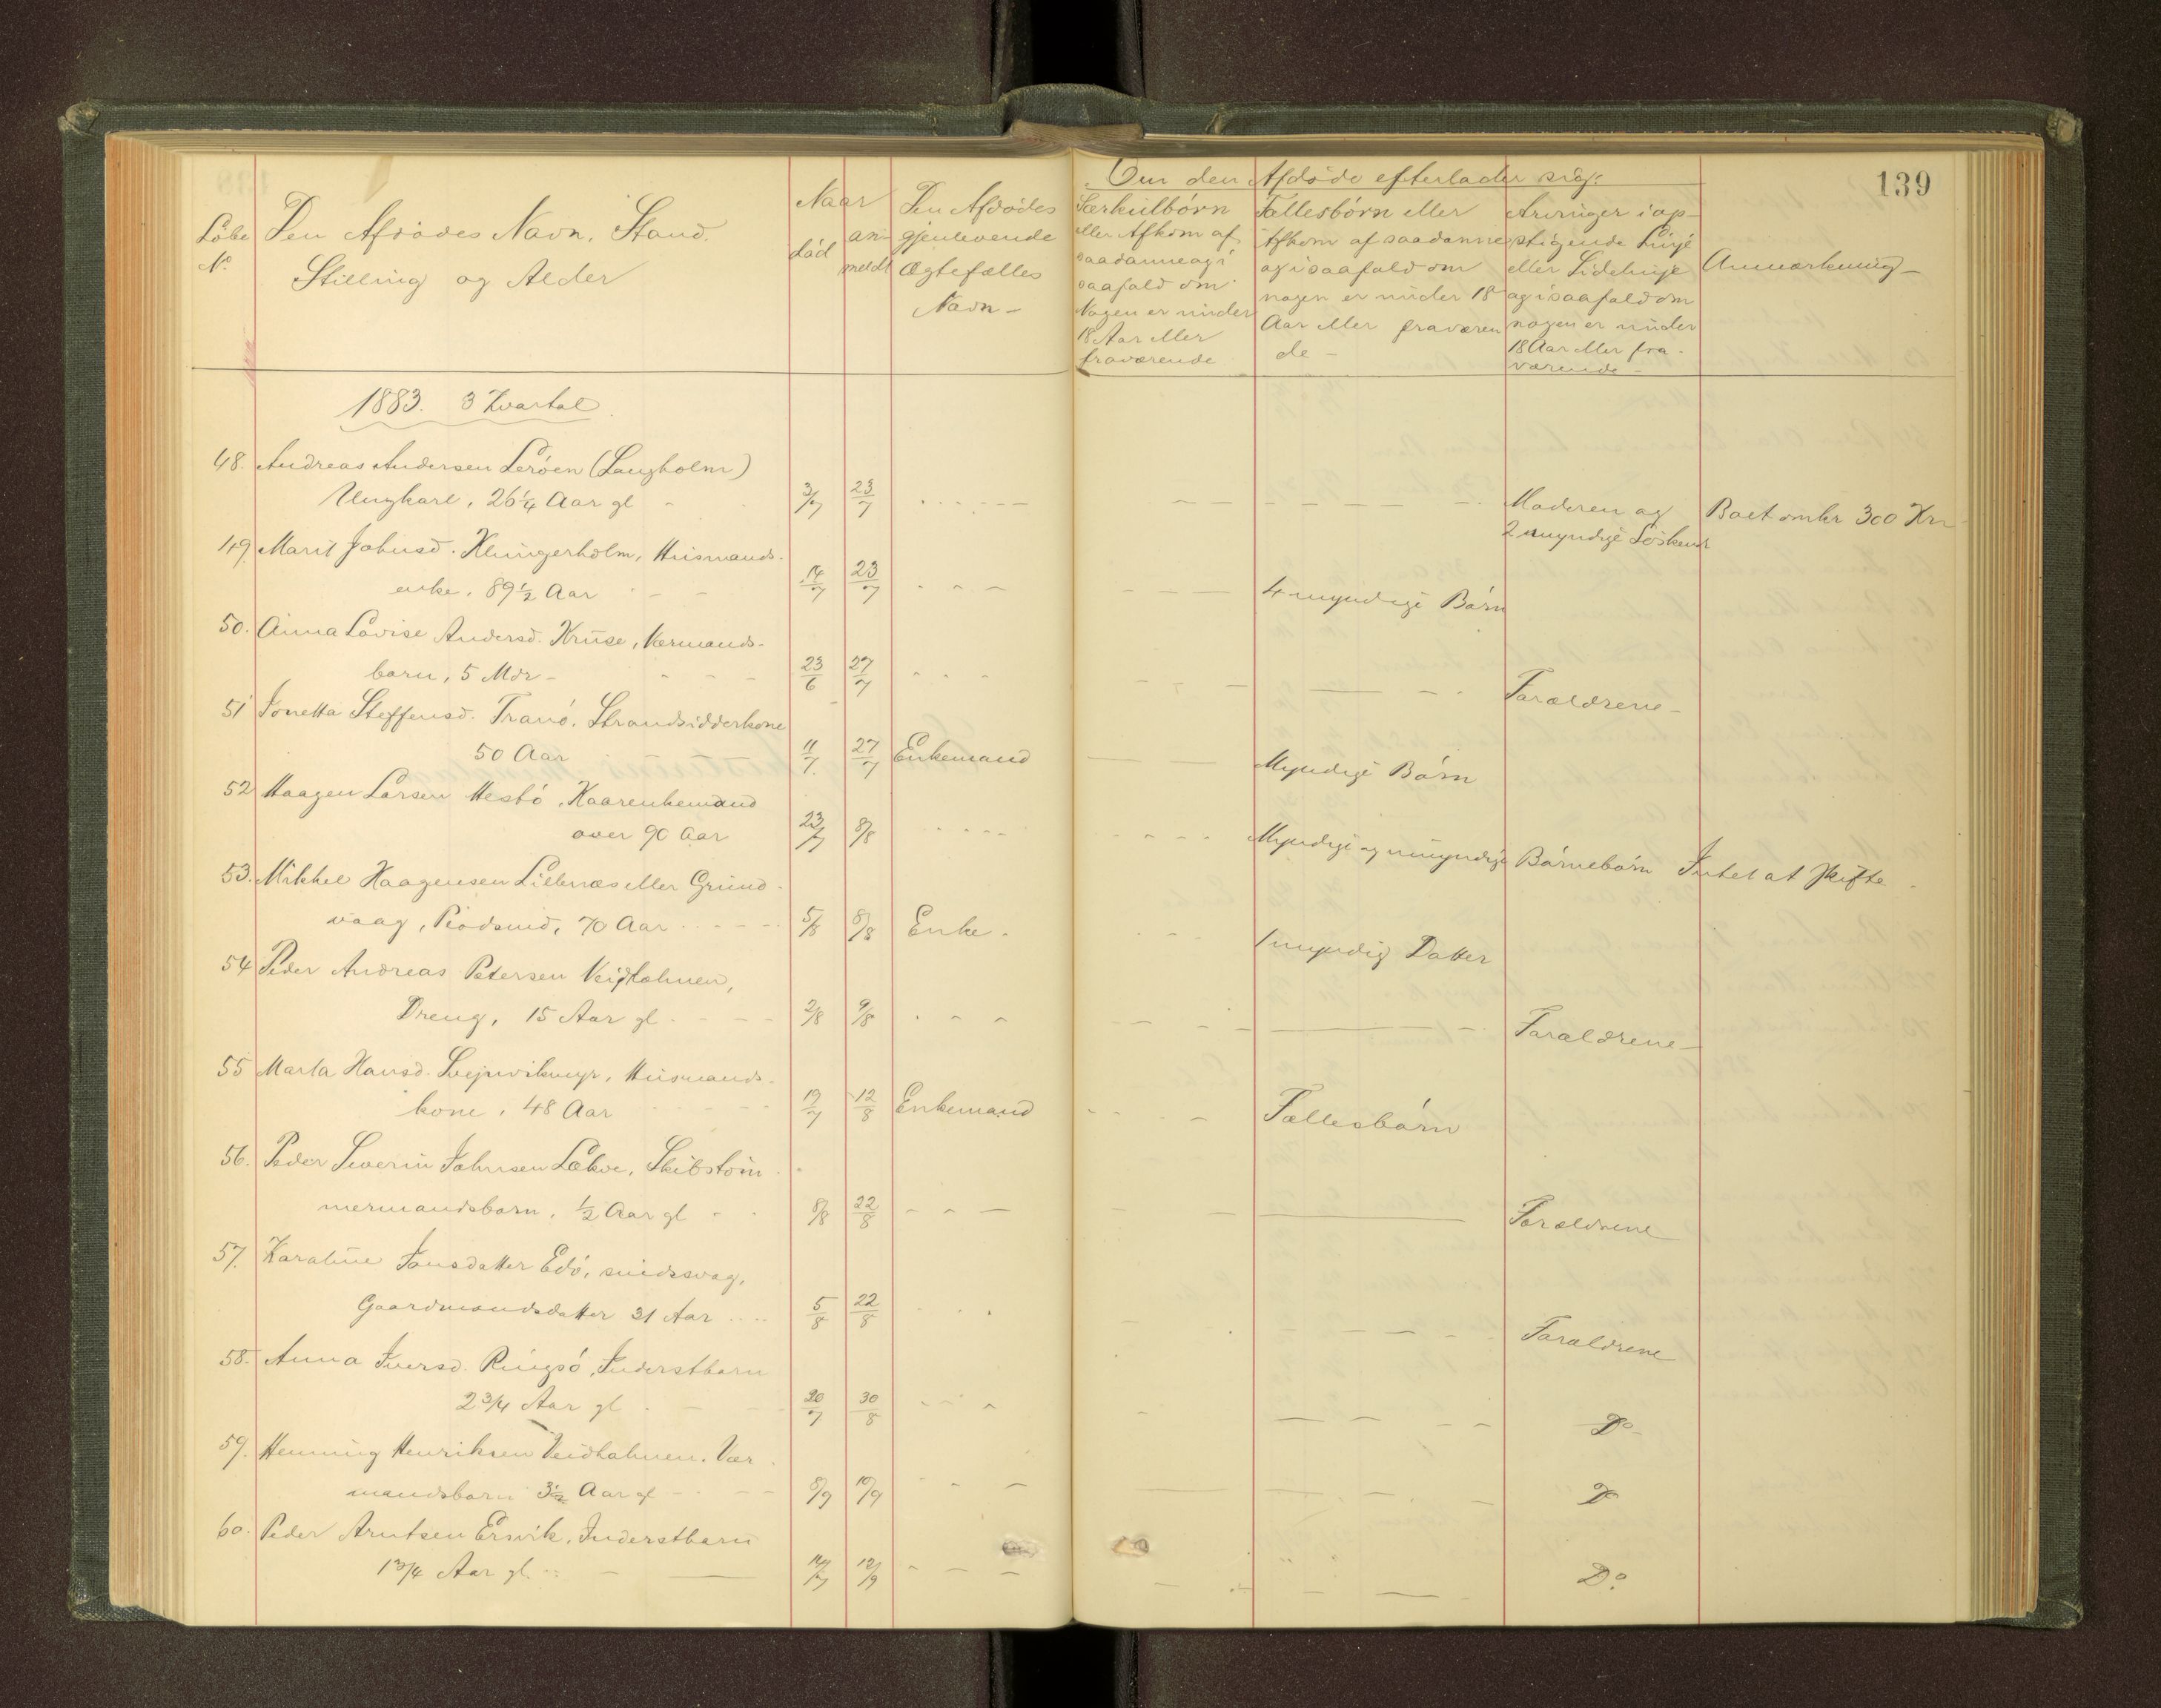 139
Om den Afdöde efterlader sig:
Löbe
No
Den Afdödes Navn, Stand,
Stilling og Alder
Naar
död
an-
meldt
Den Afdödes
gjenlevende
Ægtefælles
Navn -
Særkulbörn
eller Afkom af
saadanne og i
saafald om
Nogen er under
18 Aar eller
fraværende
Fællesbörn eller
Afkom af saadanne
og i saafald om
nogen er under 18
Aar eller fraværen
de -
Arvinger i op-
stigende Linje
eller Sidelinje
og i saafald om
nogen er under
18 Aar eller fra-
værende -
Anmærkning -
1883. 3 Kvartal
48. Andreas Andersen Leröen (Langholm)
Ungkarl, 26 1/4 Aar gl 3/7 23/7 Moderen og Boet omkr 300 Kr
2 myndige Söskende
49. Marit Johnsd. Klingerholm, Husmands-
enke, 89 1/2 Aar 14/7 23/7 4 myndige Börn
50. Anna Lovise Andersd. Kruse, Værmands-
barn, 5 Mdr - 23/6 27/7 Forældrene -
51 Jonetta Steffensd. Tranö, Strandsidderkone
50 Aar 11/7 27/7 Enkemand Myndige Börn
52 Haagen Larsen Hestö, Kaarenkemand
over 90 Aar 23/7 8/8 Myndige og umyndige Börnebörn Intet at skifte
53. Mikkel Haagensen Lillenæs eller Grund-
vaag, 70 Aar 5/8 8/8 Enke - 1 myndig Datter
54 Peder Andreas Petersen Veidholmen,
Dreng, 15 Aar gl 2/8 9/8 Forældrene -
55 Marta Hansd. Husmands-
kone, 48 Aar 19/7 12/8 Enkemand Fællesbörn
56. Peder Severin Johnsen Skibstöm-
mermandsbarn, 1/2 Aar gl 8/8 22/8 Forældrene
57. Karoline Jonsdatter Edö, sindssvag,
Gaardmandsdatter 31 Aar 5/8 22/8 Forældrene
58. Anna Iversd. Ringsö, Inderstbarn
2 3/4 Aar gl 20/7 30/8 Do
59. Henning Henriksen Veidholmen. Vær-
mandsbarn 3 1/2 Aar gl 8/9 10/9 Do
60. Peder Arntsen Ervik, Inderstbarn
1 3/4 Aar gl. 14/7 12/9 Do